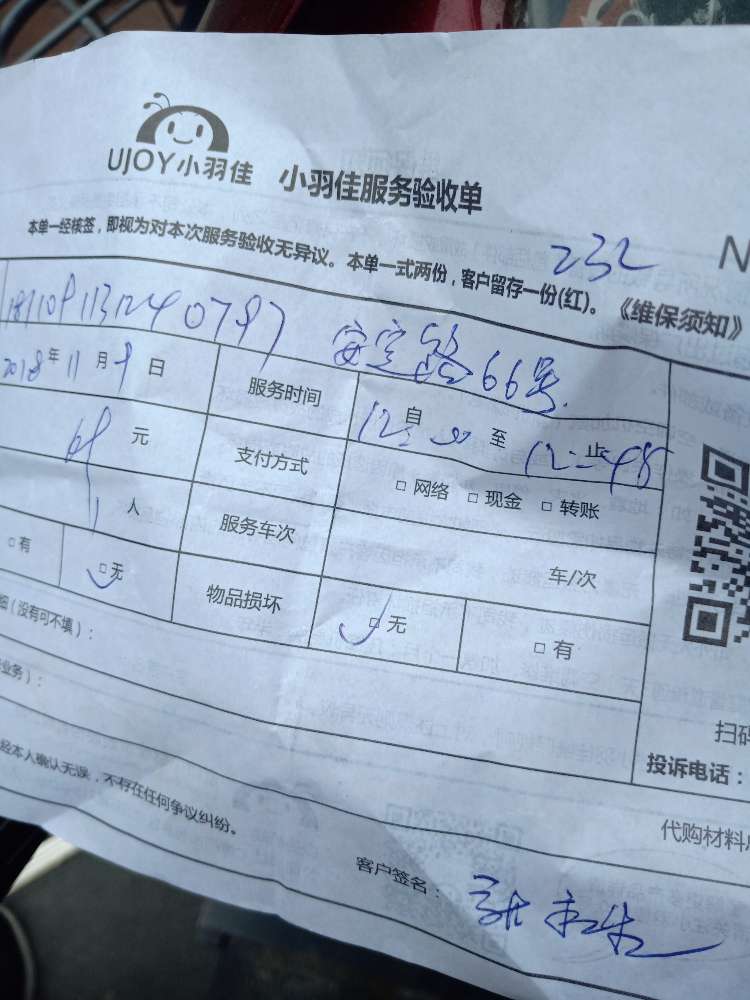 UJOY小羽佳 小羽佳服务验收单
232
N
本单一经核签，即视为对本次服务验收无异议。本单一式两份，客户留存一份(红)。《维保须知》
安定路66号
2018年11月9日 服务时间 自12:00至12:48止
元 支付方式 □网络 □现金 □转账
1人 服务车次 车/次
□有 □无 物品损坏 □无 □有
细（没有可不填）：
业务）：
扫码
投诉电话：
经本人确认无误，不存在任何争议纠纷。
代购材料
客户签名：